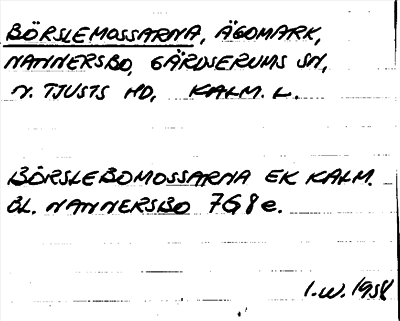 BÖRSLEMOSSARNA, ÄGOMARK,
NANNERSBO, GÄRDSERUMS SN,
N. TJUSTS HD, KALM. L.
BÖRSLEBOMOSSARNA EK KALM.
BL. NANNERSBO 7G8e.
I.W. 1958